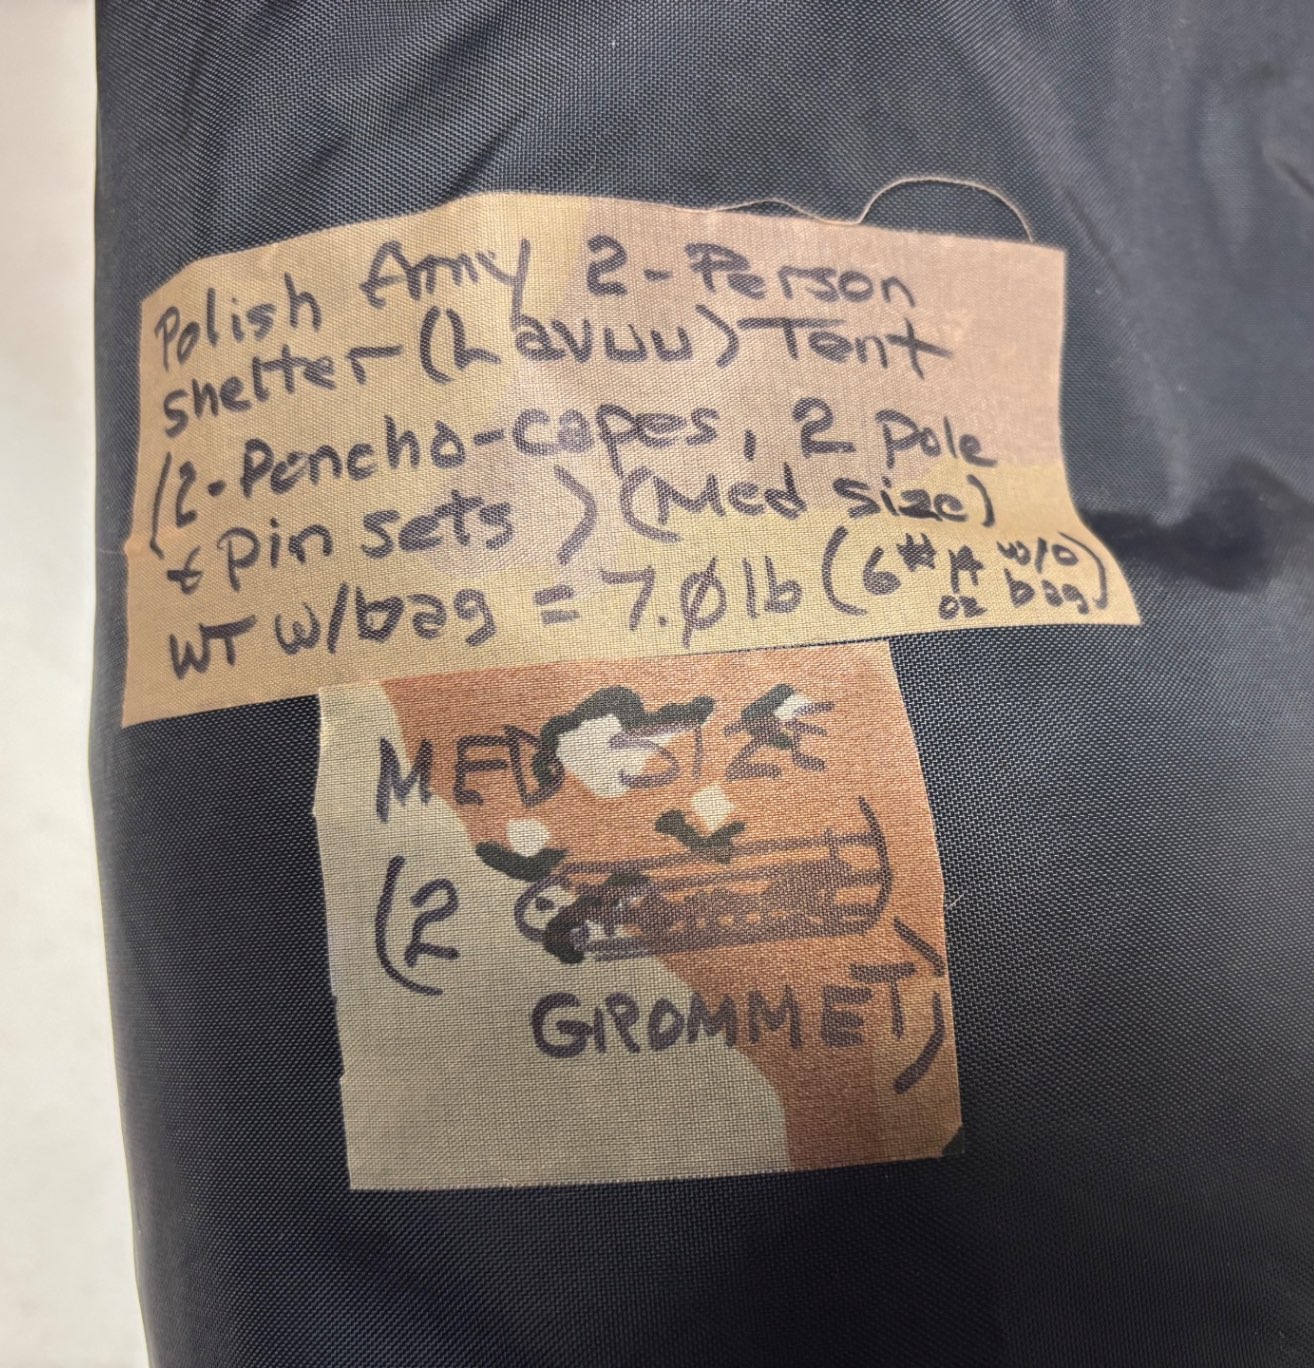 Polish Army 2-Person
shelter (Lavuu) Tent
(2-Poncho-capes, 2 pole
& pin sets) (Med size)
WT w/bag = 7.0 lb (6# 14 oz w/o bag)
MED SIZE
(2
GROMMET)